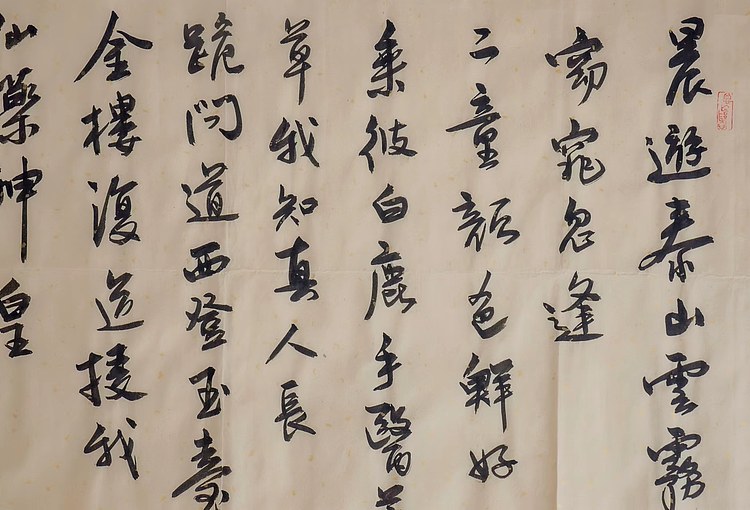 晨遊泰山雲霧
窈窕忽逢
二童顏色鮮好
乘彼白鹿手翳芝
草我知真人長
跪問道西登玉臺
金樓復道授我
仙藥神皇